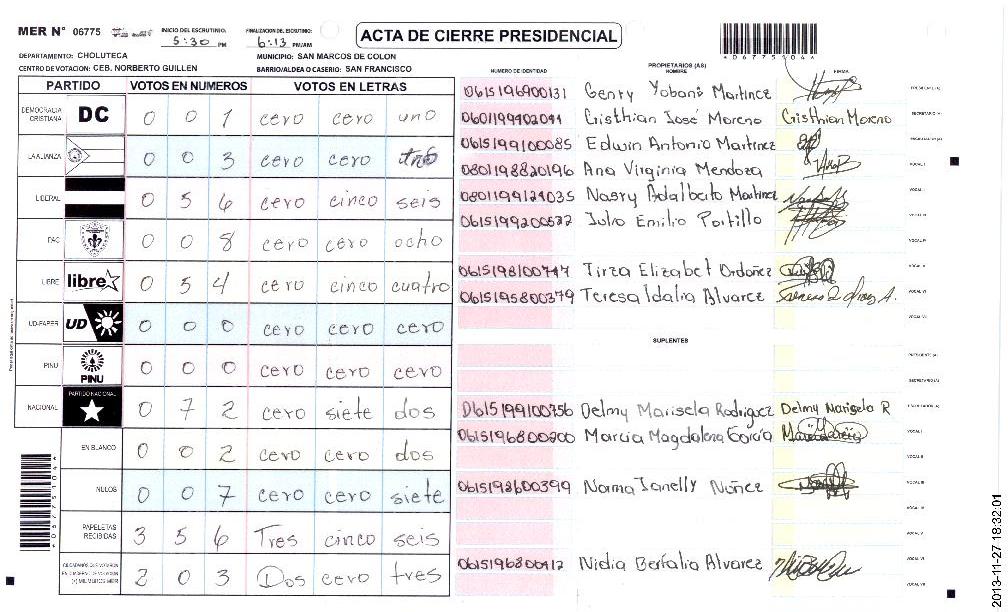 MER N° 06775 INICIO DEL ESCRUTINIO: 5:30 PM FINALIZACION DEL ESCRUTINIO: 6:13 PM/AM ACTA DE CIERRE PRESIDENCIAL
DEPARTAMENTO: CHOLUTECA MUNICIPIO: SAN MARCOS DE COLON
CENTRO DE VOTACION: CEB. NORBERTO GUILLEN BARRIO/ALDEA O CASERIO: SAN FRANCISCO
PARTIDO VOTOS EN NUMEROS VOTOS EN LETRAS
DEMOCRACIA CRISTIANA DC 0 0 1 cero cero uno
LA ALIANZA 0 0 3 cero cero tres
LIBERAL 0 5 6 cero cinco seis
PAC 0 0 8 cero cero ocho
LIBRE libre 0 5 4 cero cinco cuatro
UD-FAPER UD 0 0 0 cero cero cero
PINU PINU 0 0 0 cero cero cero
NACIONAL PARTIDO NACIONAL 0 7 2 cero siete dos
EN BLANCO 0 0 2 cero cero dos
NULOS 0 0 7 cero cero siete
PAPELETAS RECIBIDAS 3 5 6 Tres cinco seis
CIUDADANOS QUE VOTARON (+) MIEMBROS MER 2 0 3 Dos cero tres
*067759044*
NUMERO DE IDENTIDAD PROPIETARIOS (AS) NOMBRE FIRMA
0615196900131 Genry Yobani Martinez PRESIDENTE (A)
Cristhian José Moreno Cristhian Moreno SECRETARIO (A)
0615199100085 Edwin Antonio Martinez ESCRUTADOR (A)
0801198820196 Ana Virginia Mendoza VOCAL I
Nasry Adalberto Martinez VOCAL II
Julio Emilio Portillo
VOCAL IV
Tirza Elizabet Ordoñez
0615195800379 Teresa Idalia Alvarez VOCAL VI
VOCAL VII
SUPLENTES
PRESIDENTE (A)
SECRETARIO (A)
0615199100756 Delmy Marisela Rodriguez Delmy Marisela R ESCRUTADOR (A)
0615196800200 Marcia Magdalena García VOCAL I
VOCAL II
0615198600399 Norma Ianelly Núñez VOCAL III
VOCAL IV
VOCAL V
Nidia Bertalia Alvarez VOCAL VI
VOCAL VII
2013-11-27 18:32:01